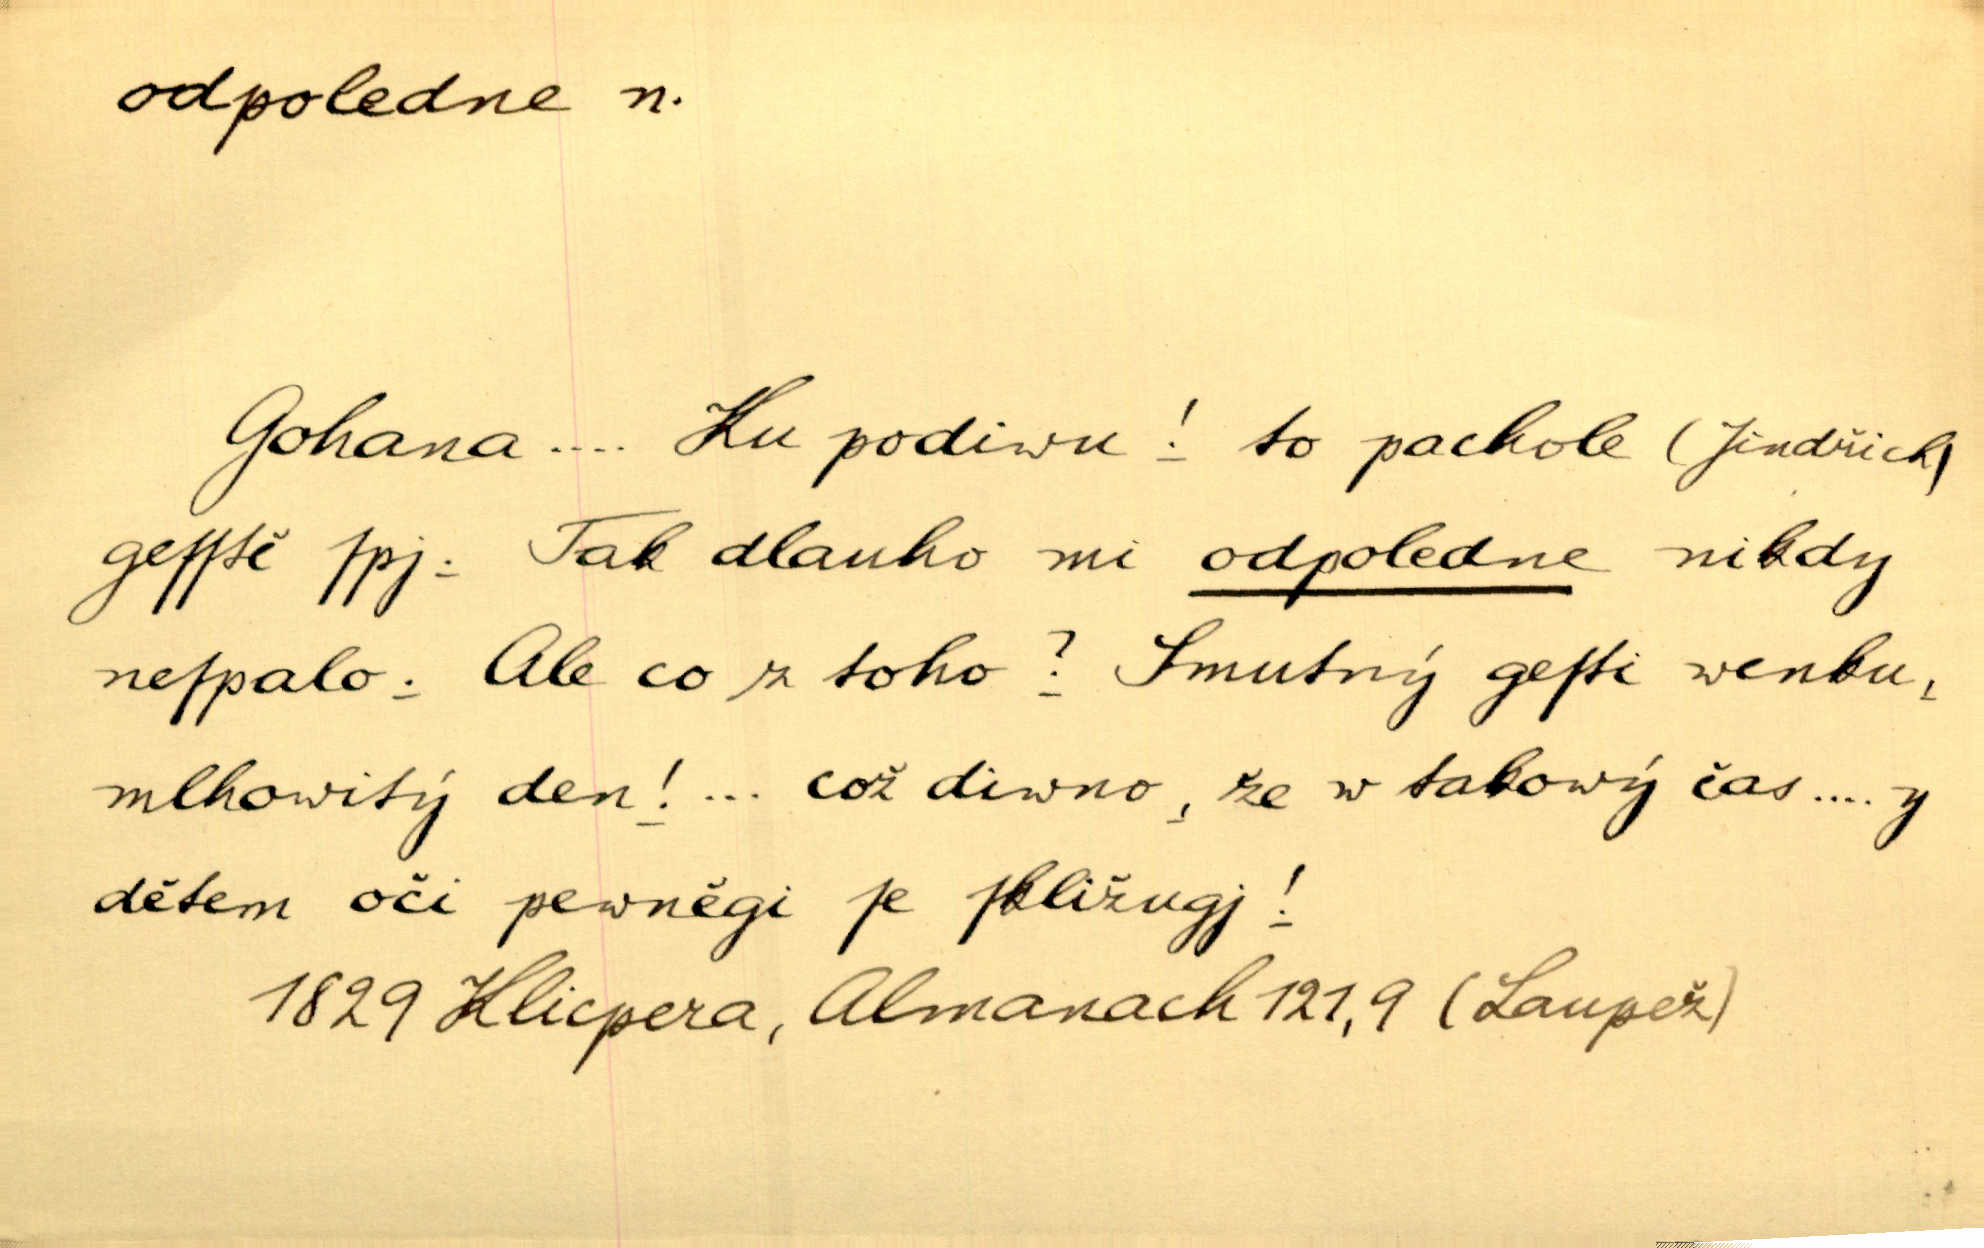 odpoledne n.
Gohana .... Ku podiwu! to pachole (Jindřich)
geſſtě ſpj. Tak dlauho mi odpoledne nikdy
neſpalo. Ale co z toho? Smutný geſti wenku,
mlhowitý den! ... což diwno, že w takowý čas .... y
dětem oči pewněgi ſe ſkližugj!
1829 Klicpera, Almanach 121,9 (Laupež)